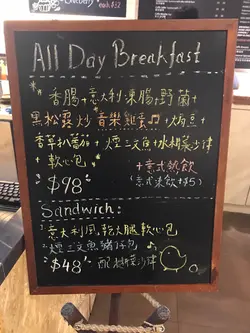 All Day Breakfast
香腸+意大利凍腸+野菌+
黑松露炒音樂雞蛋♫+焗豆+
香草扒蕃茄+煙三文魚+水林菜沙律
+軟心包
+意式熱飲
(意式凍飲+$5)
$98
Sandwich:
意大利風乾火腿軟心包
煙三文魚豬仔包
$48 配 沙律